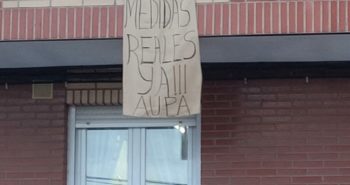 MEDIDAS
REALES
YA!!!
AUPA